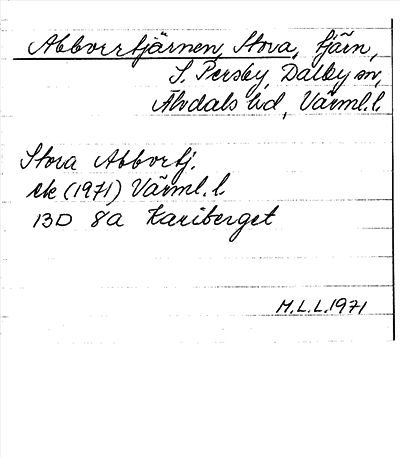 Abborrtjärnen, Stora, tjärn,
S. Persby, Dalby sn,
Älvdals hd, Värml. l.
Stora Abbortj.
rek (1971) Värml. l
13D 8a Kariberget
M.L.L. 1971